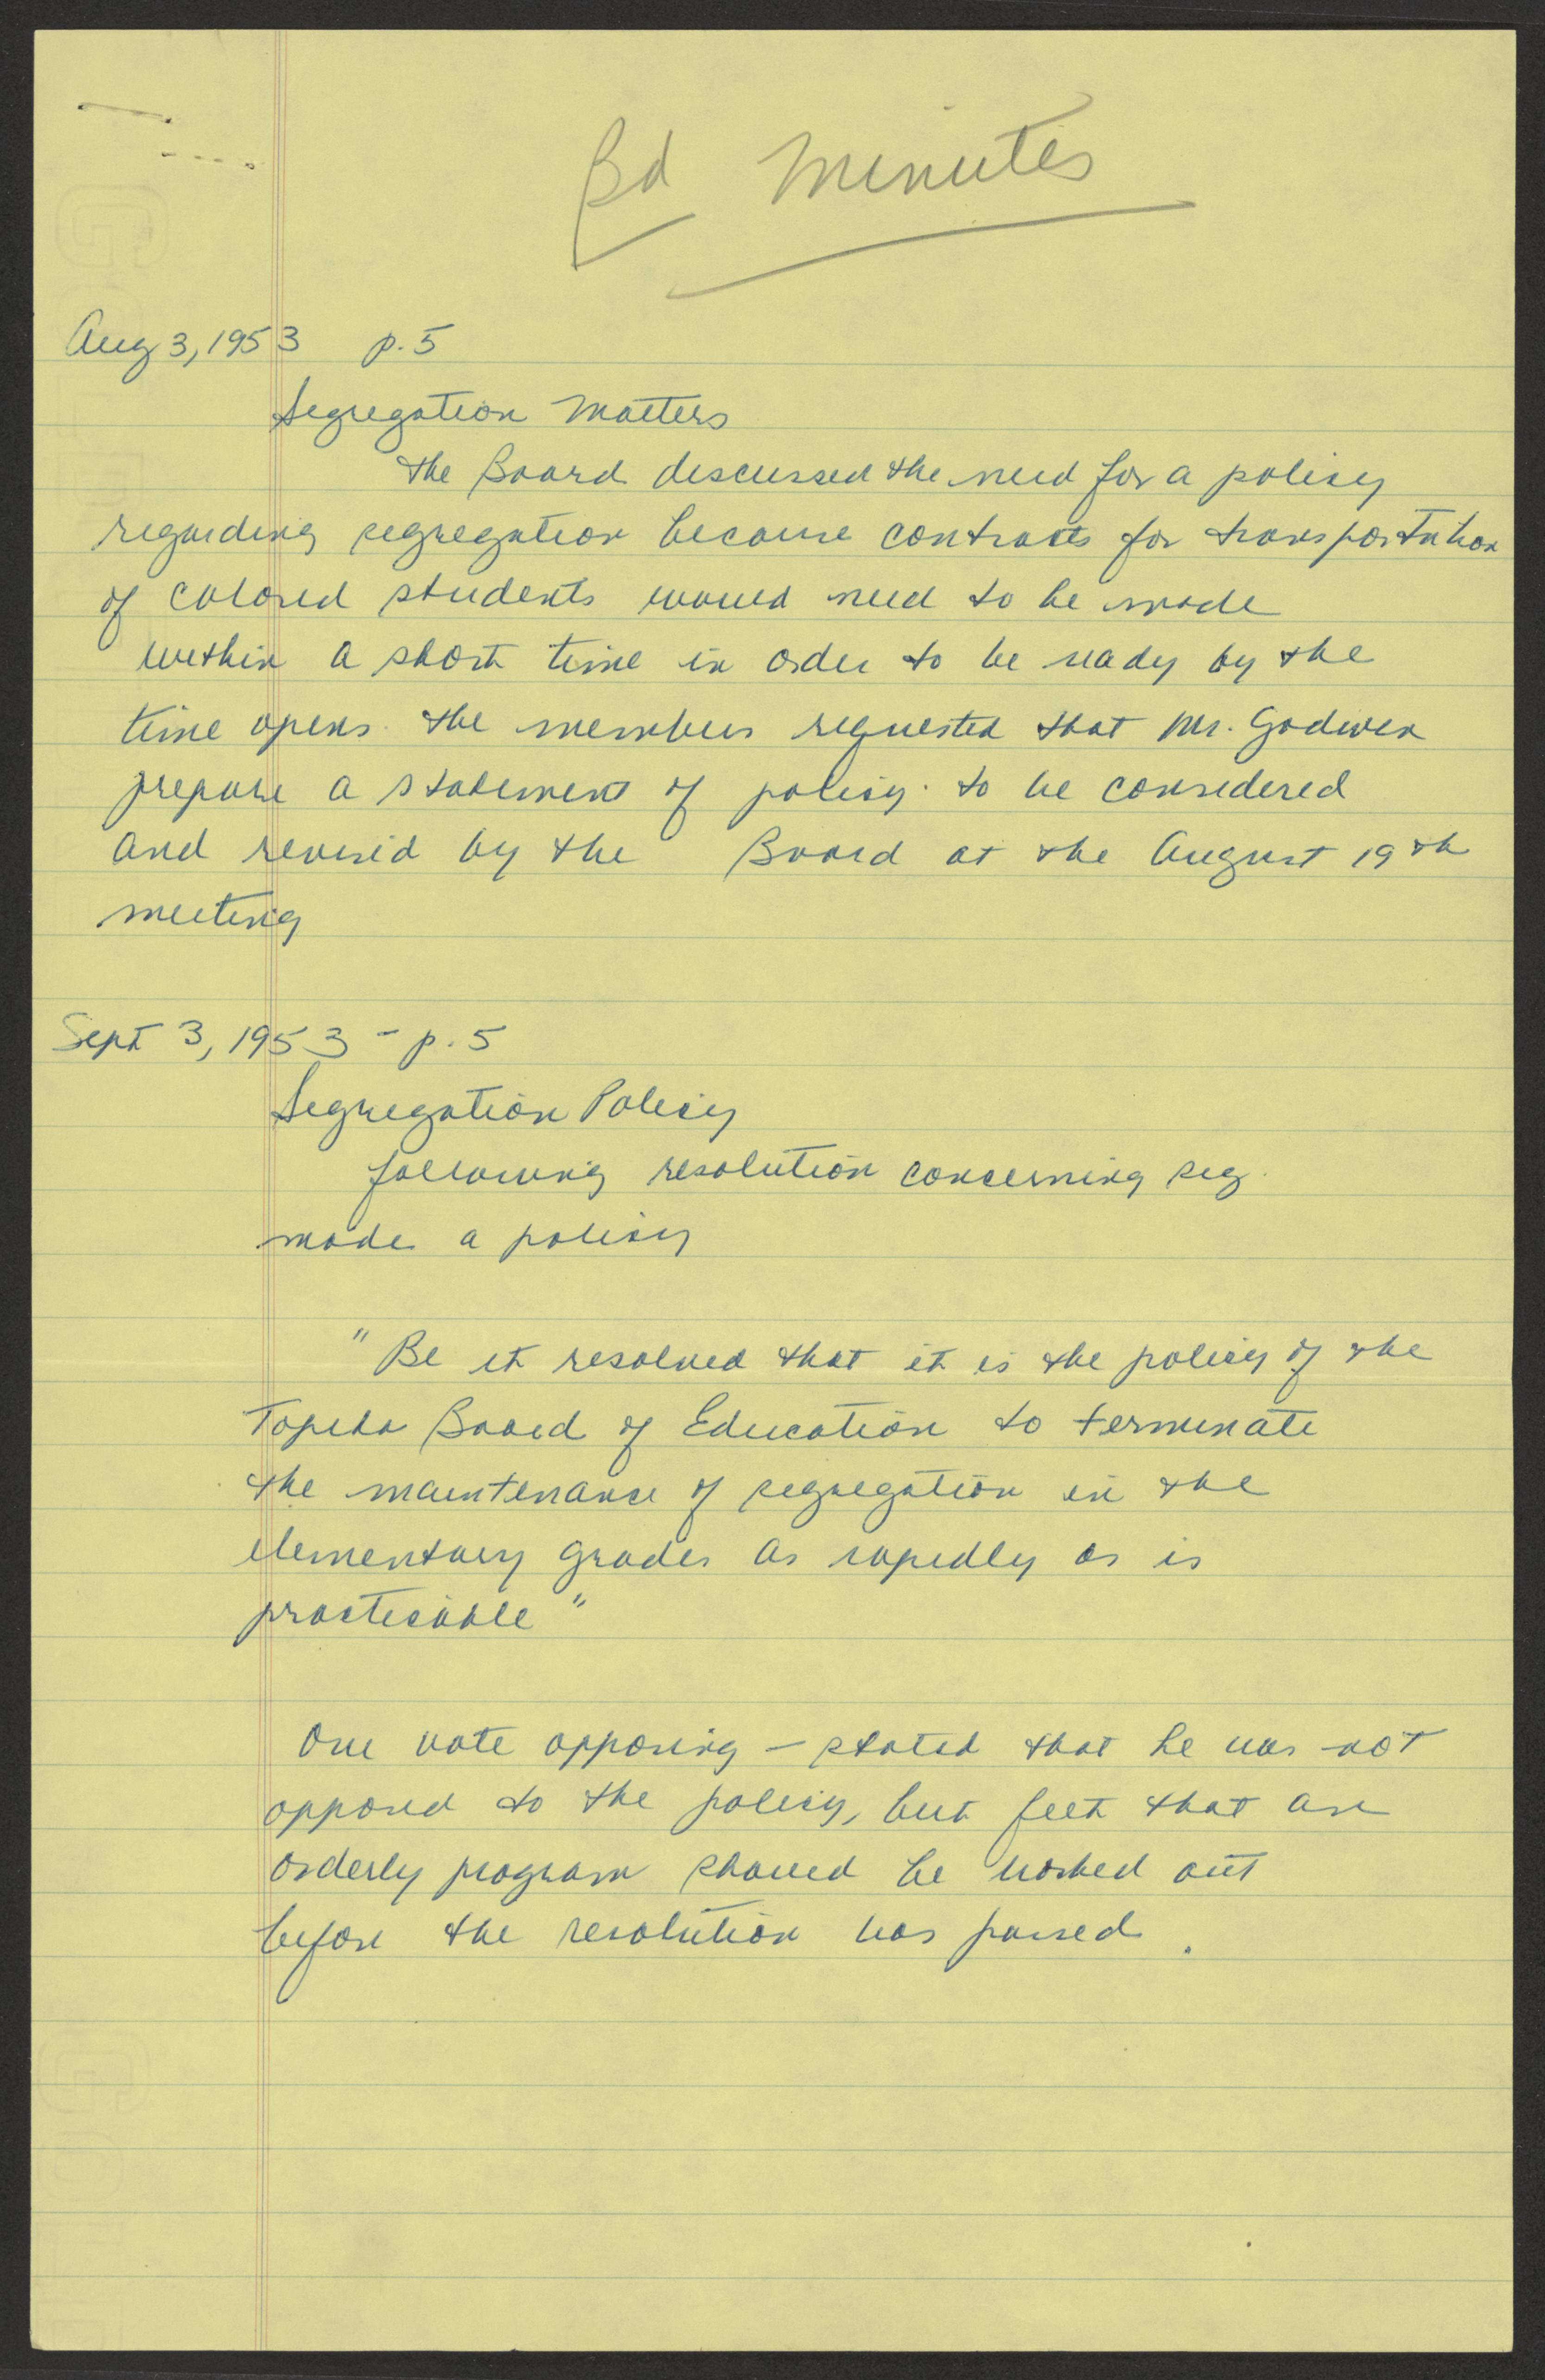 Bd Minutes
Aug 3, 1953 p. 5
Segregation Matters
The Board discussed the need for a policy
regarding segregation because contracts for transportation
of colored students would need to be made
within a short time in order to be ready by the
time opens. The members requested that Mr. Godwin
prepare a statement of policy to be considered
and revised by the Board at the August 19th
meeting
Sept 3, 1953 - p. 5
Segregation Policy
following resolution concerning seg.
made a policy
"Be it resolved that it is the policy of the
Topeka Board of Education to terminate
the maintenance of segregation in the
elementary grades as rapidly as is
practicable"
One vote opposing - stated that he was not
opposed to the policy, but felt that an
orderly program should be worked out
before the resolution was passed.